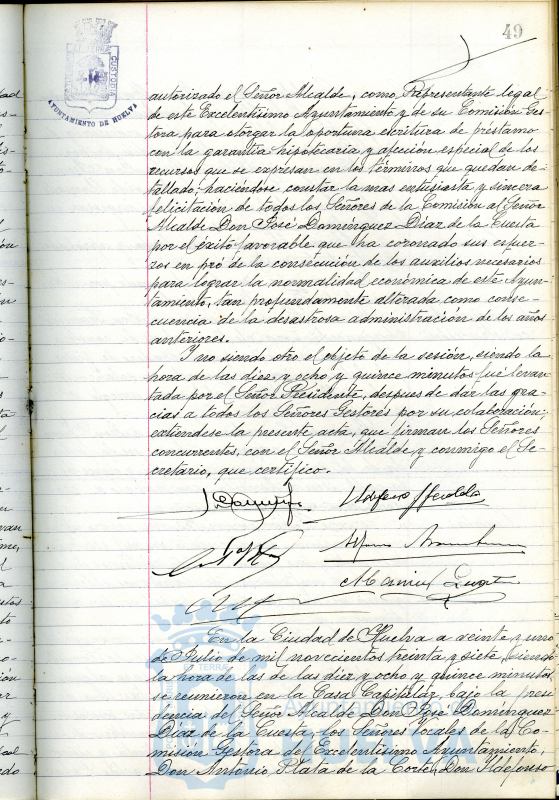 49
CUSTODIA
AYUNTAMIENTO DE HUELVA
autorizado el Señor Alcalde, como Representante legal
de este Excelentísimo Ayuntamiento y de su Comisión Ges-
tora para otorgar la oportuna escritura de préstamo
con la garantía hipotecaria y afección especial de los
recursos que se expresan en los términos que quedan de-
tallado; haciendose constar la mas entusiasta y sincera
felicitación de todos los Señores de la Comisión al Señor
Alcalde Don José Domínguez Díaz de la Cuesta
por el éxito favorable que ha coronado sus esfuer-
zos en pró de la consecución de los auxilios necesarios
para lograr la normalidad económica de este Ayun-
tamiento, tan profundamente alterada como conse-
cuencia de la desastrosa administración de los años
anteriores.
Y no siendo otro el objeto de la sesión, siendo la
hora de las diez y ocho y quince minutos fué levan-
tada por el Señor Presidente, despues de dar las gra-
cias a todos los Señores Gestores por su colaboración;
extiendese la presente acta, que firman los Señores
concurrentes, con el Señor Alcalde y conmigo el Se-
cretario, que certifico.
En la Ciudad de Huelva a veinte y uno
de Julio de mil novecientos treinta y siete, siendo
la hora de las de las diez y ocho y quince minutos
se reunieron en la Casa Capitular, bajo la presi-
dencia del Señor Alcalde Don José Domínguez
Díaz de la Cuesta, los Señores Vocales de la Co-
misión Gestora del Excelentísimo Ayuntamiento,
Don Antonio Plata de la Corte, Don Ildefonso